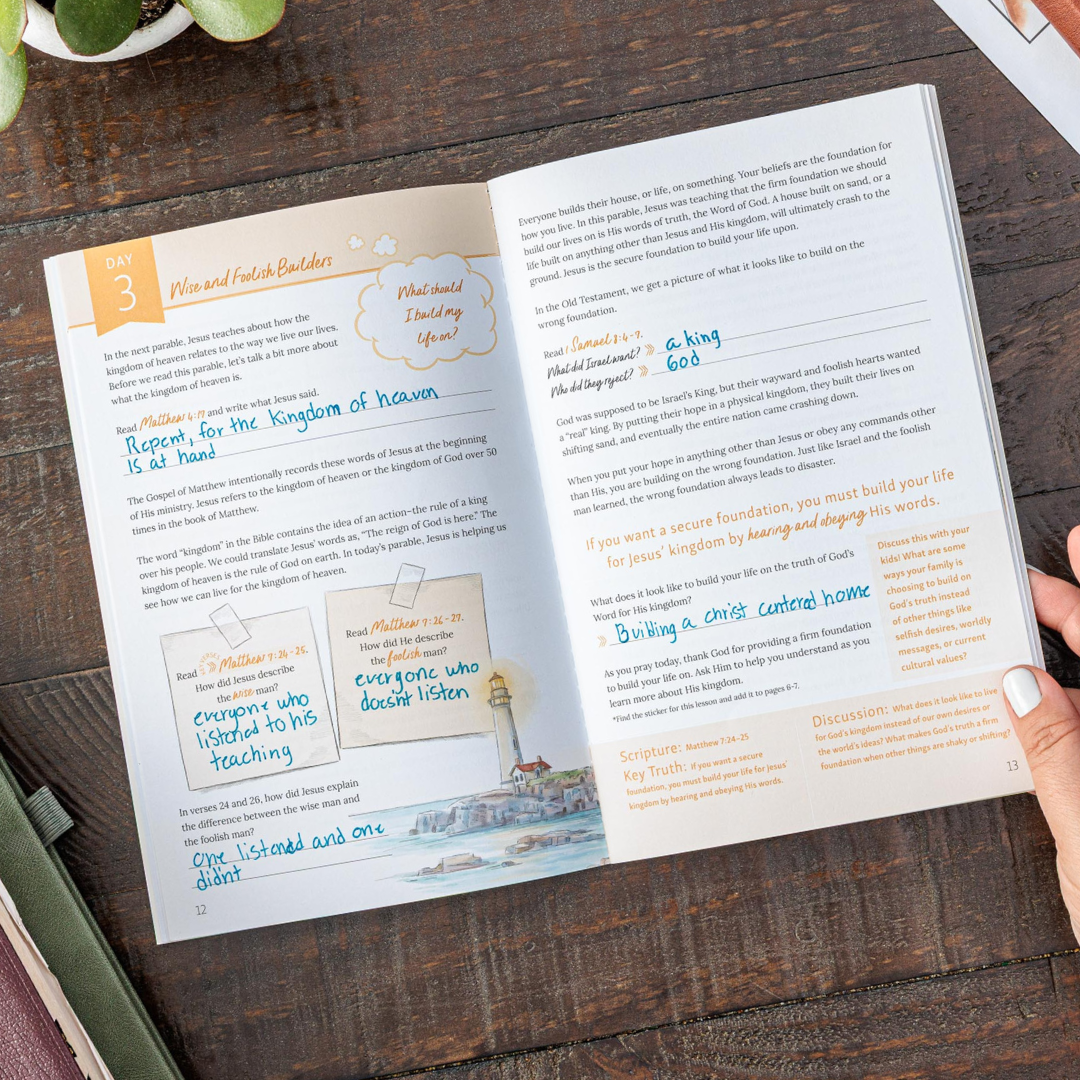 DAY
3
Wise and Foolish Builders
What should
I build my
life on?
In the next parable, Jesus teaches about how the
kingdom of heaven relates to the way we live our lives.
Before we read this parable, let's talk a bit more about
what the kingdom of heaven is.
Read Matthew 4:17 and write what Jesus said.
Repent, for the Kingdom of heaven
Is at hand
The Gospel of Matthew intentionally records these words of Jesus at the beginning
of His ministry. Jesus refers to the kingdom of heaven or the kingdom of God over 50
times in the book of Matthew.
The word "kingdom" in the Bible contains the idea of an action–the rule of a king
over his people. We could translate Jesus' words as, "The reign of God is here." The
kingdom of heaven is the rule of God on earth. In today's parable, Jesus is helping us
see how we can live for the kingdom of heaven.
Read Matthew 7:24-25.
How did Jesus describe
the wise man?
everyone who
listened to his
teaching
Read Matthew 7:26-27.
How did He describe
the foolish man?
everyone who
doesnt listen
In verses 24 and 26, how did Jesus explain
the difference between the wise man and
the foolish man?
One listened and one
didnt
12
Everyone builds their house, or life, on something. Your beliefs are the foundation for
how you live. In this parable, Jesus was teaching that the firm foundation we should
build our lives on is His words of truth, the Word of God. A house built on sand, or a
life built on anything other than Jesus and His kingdom, will ultimately crash to the
ground. Jesus is the secure foundation to build your life upon.
In the Old Testament, we get a picture of what it looks like to build on the
wrong foundation.
Read 1 Samuel 8:4-7.
What did Israel want? a king
Who did they reject? God
God was supposed to be Israel's King, but their wayward and foolish hearts wanted
a "real" king. By putting their hope in a physical kingdom, they built their lives on
shifting sand, and eventually the entire nation came crashing down.
When you put your hope in anything other than Jesus or obey any commands other
than His, you are building on the wrong foundation. Just like Israel and the foolish
man learned, the wrong foundation always leads to disaster.
If you want a secure foundation, you must build your life
for Jesus' kingdom by hearing and obeying His words.
What does it look like to build your life on the truth of God's
Word for His kingdom?
Building a christ centered home
As you pray today, thank God for providing a firm foundation
to build your life on. Ask Him to help you understand as you
learn more about His kingdom.
*Find the sticker for this lesson and add it to pages 6-7.
Discuss this with your
kids! What are some
ways your family is
choosing to build on
God's truth instead
of other things like
selfish desires, worldly
messages, or current
cultural values?
Scripture: Matthew 7:24-25
Key Truth: If you want a secure
foundation, you must build your life for Jesus'
kingdom by hearing and obeying His words.
Discussion: What does it look like to live
for God's kingdom instead of our own desires or
the world's ideas? What makes God's truth a firm
foundation when other things are shaky or shifting?
13